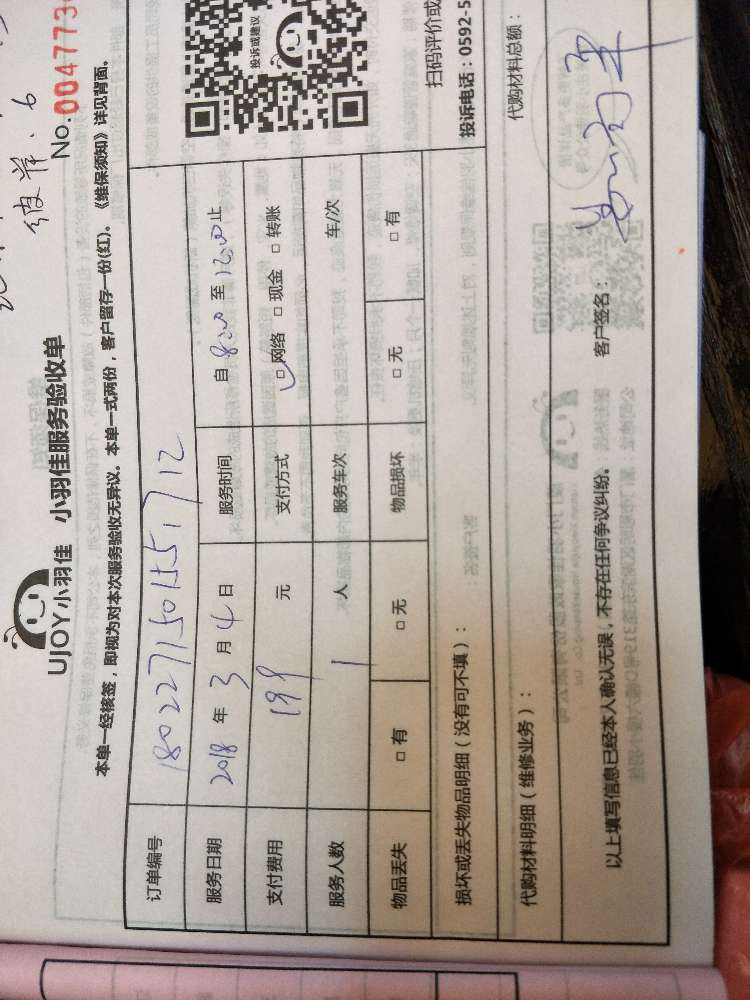 彼岸.6
UJOY小羽佳 小羽佳服务验收单
No.004773
本单一经核签，即视为对本次服务验收无异议。本单一式两份，客户留存一份(红)。《维保须知》详见背面。
订单编号 1802271501551712
投诉或建议
服务日期 2018年3月4日 服务时间 自8:00至12:00止
支付费用 199元 支付方式 □网络 □现金 □转账
服务人数 1人 服务车次 车/次
扫码评价或
物品丢失 □有 □无 物品损坏 □无 □有
投诉电话：0592-5
损坏或丢失物品明细（没有可不填）：
代购材料明细（维修业务）： 代购材料总额：
以上填写信息已经本人确认无误，不存在任何争议纠纷。 客户签名：